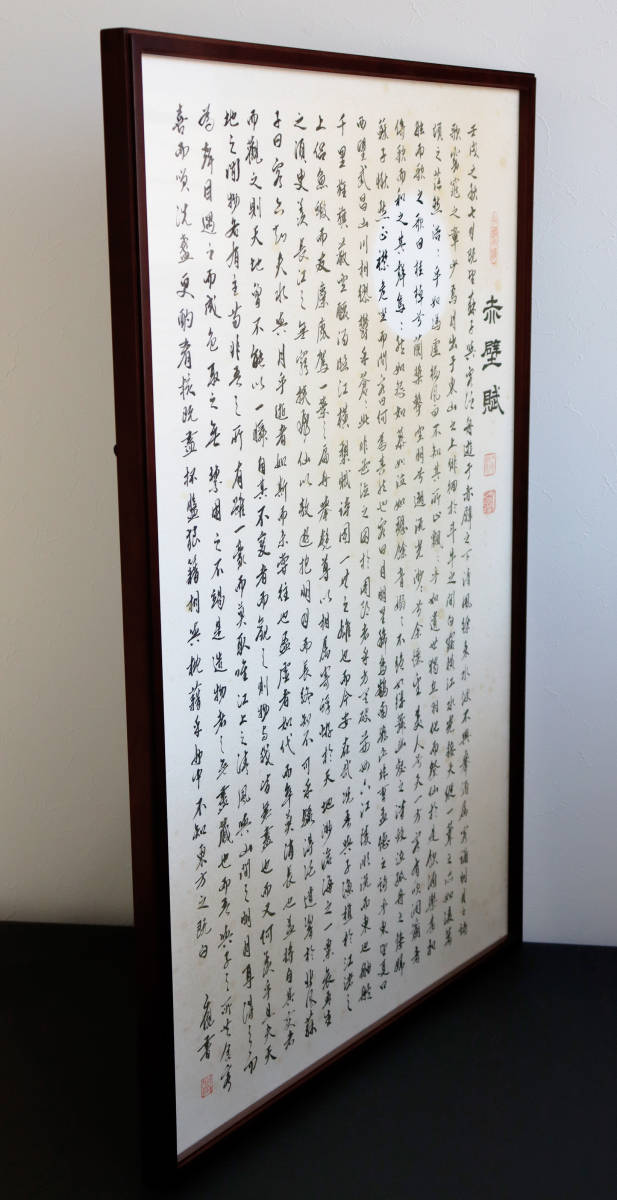 赤壁賦
壬戌之秋七月既望蘇子與客泛舟遊于赤壁之下清風徐來水波不興舉酒屬客誦明月之詩
歌窈窕之章少焉月出于東山之上徘徊於斗牛之間白露橫江水光接天縱一葦之所如凌萬
頃之茫然浩〻乎如馮虛御風而不知其所止飄〻乎如遺世獨立羽化而登仙於是飲酒樂甚扣
舷而歌之歌曰桂棹兮蘭槳擊空明兮遡流光渺〻兮余懷望美人兮天一方客有吹洞簫者
倚歌而和之其聲嗚〻然如怨如慕如泣如訴餘音嫋〻不絕如縷舞幽壑之潛蛟泣孤舟之嫠婦
蘇子愀然正襟危坐而問客曰何為其然也客曰月明星稀烏鵲南飛此非曹孟德之詩乎東望夏口
西望武昌山川相繆鬱乎蒼〻此非孟德之困於周郎者乎方其破荊州下江陵順流而東也舳艫
千里旌旗蔽空釃酒臨江橫槊賦詩固一世之雄也而今安在哉況吾與子漁樵於江渚之
上侶魚蝦而友麋鹿駕一葉之扁舟舉匏尊以相屬寄蜉蝣於天地渺滄海之一粟哀吾生
之須臾羨長江之無窮挾飛仙以遨遊抱明月而長終知不可乎驟得託遺響於悲風蘇
子曰客亦知夫水與月乎逝者如斯而未嘗往也盈虛者如代而卒莫消長也蓋將自其變者
而觀之則天地曾不能以一瞬自其不變者而觀之則物與我皆無盡也而又何羨乎且夫天
地之間物各有主苟非吾之所有雖一毫而莫取唯江上之清風與山間之明月耳得之而
為聲目遇之而成色取之無禁用之不竭是造物者之無盡藏也而吾與子之所共食客
喜而笑洗盞更酌肴核既盡杯盤狼藉相與枕藉乎舟中不知東方之既白
書